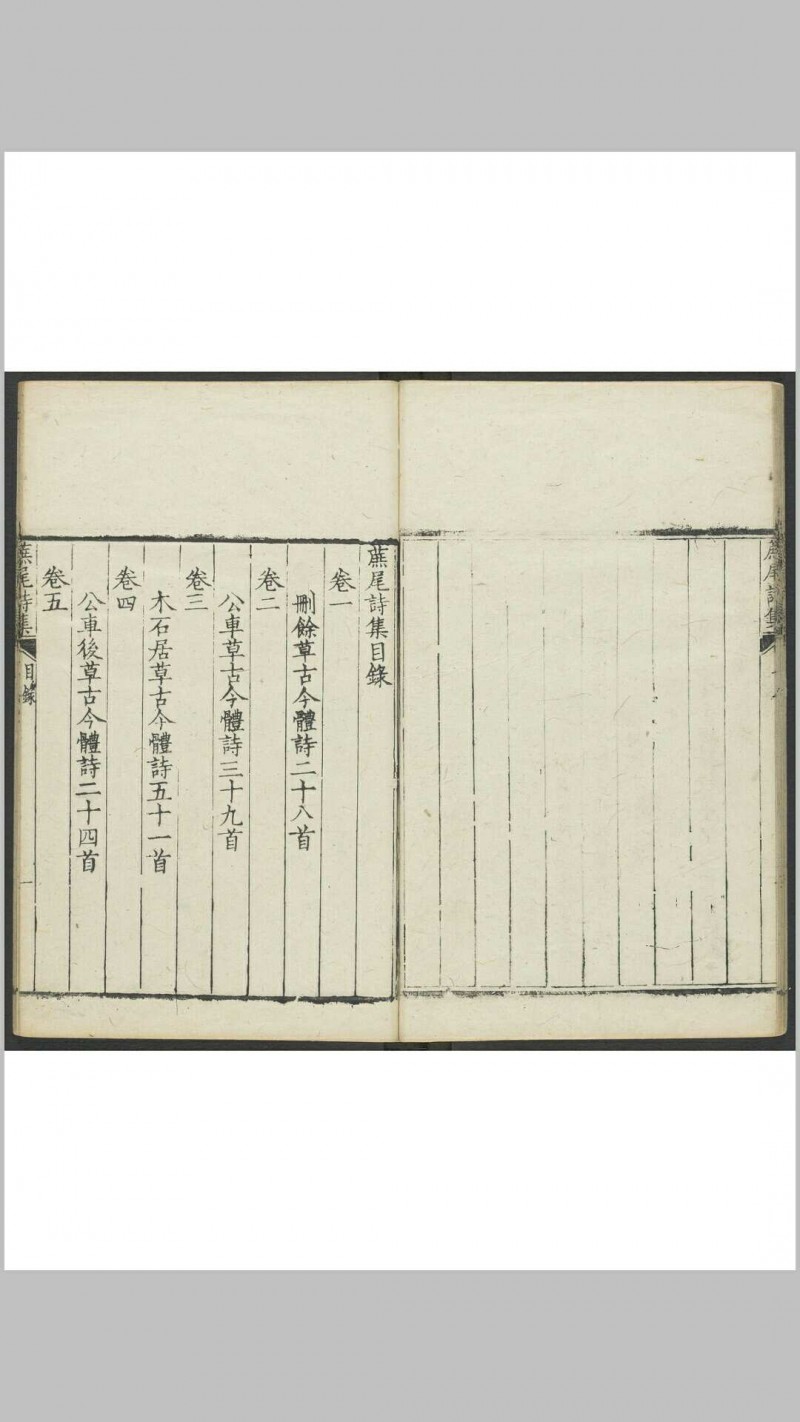 蔗尾詩集
蔗尾詩集目錄
卷一
刪餘草古今體詩二十八首
卷二
公車草古今體詩三十九首
卷三
木石居草古今體詩五十一首
卷四
公車後草古今體詩二十四首
卷五
蔗尾詩集
目錄
一